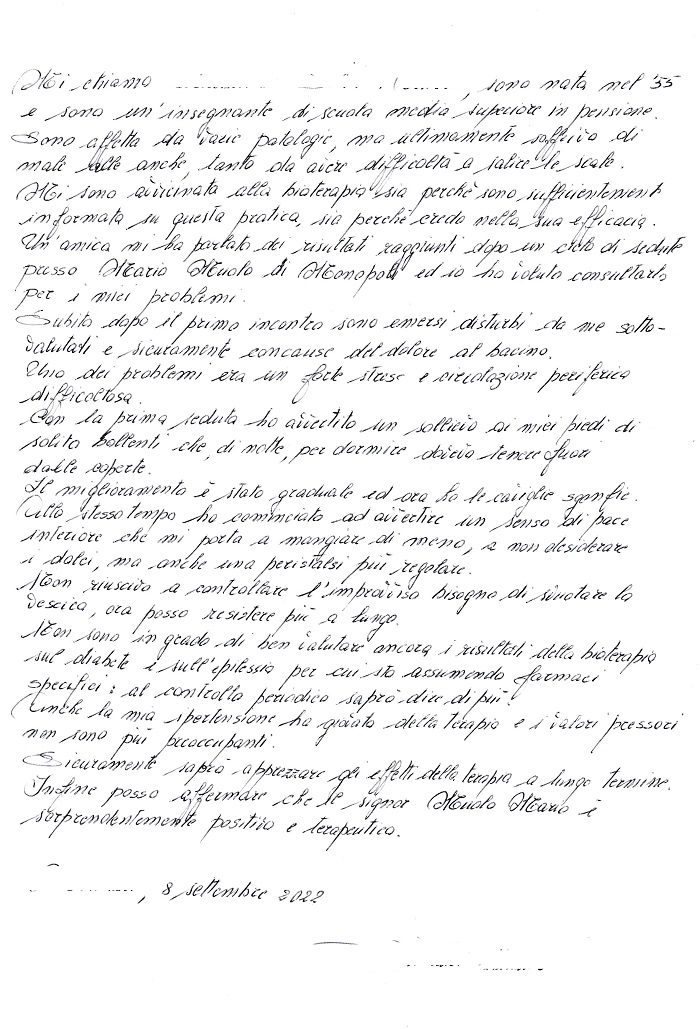 Mi chiamo , sono nata nel '55
e sono un'insegnante di scuola media superiore in pensione.
Sono affetta da varie patologie, ma ultimamente soffrivo di
male alle anche, tanto da avere difficoltà a salire le scale.
Mi sono avvicinata alla bioterapia sia perchè sono sufficientement
informata su questa pratica, sia perchè credo nella sua efficacia.
Un'amica mi ha parlato dei risultati raggiunti dopo un ciclo di sedute
presso Mario Muolo di Monopoli ed io ho voluto consultarlo
per i miei problemi.
Subito dopo il primo incontro sono emersi disturbi da me sotto-
valutati e sicuramente concause del dolore al bacino.
Uno dei problemi era un forte stress e circolazione periferica
difficoltosa.
Con la prima seduta ho avvertito un sollievo ai miei piedi di
solito bollenti che, di notte, per dormire dovevo tenere fuori
dalle coperte.
Il miglioramento è stato graduale ed ora ho le caviglie sgonfie.
Allo stesso tempo ho cominciato ad avvertire un senso di pace
interiore che mi porta a mangiare di meno, a non desiderare
i dolci, ma anche una peristalsi più regolare.
Non riuscivo a controllare l'improvviso bisogno di svuotare la
vescica, ora posso resistere più a lungo.
Non sono in grado di ben valutare ancora i risultati della bioterapia
sul diabete e sull'epilessia per cui sto assumendo farmaci
specifici: al controllo periodico saprò dire di più!
Anche la mia ipertensione ha giovato della terapia e i valori pressori
non sono più preoccupanti.
Sicuramente saprò apprezzare gli effetti della terapia a lungo termine.
Infine posso affermare che il signor Muolo Mario è
sorprendentemente positivo e terapeutico.
, 8 settembre 2022